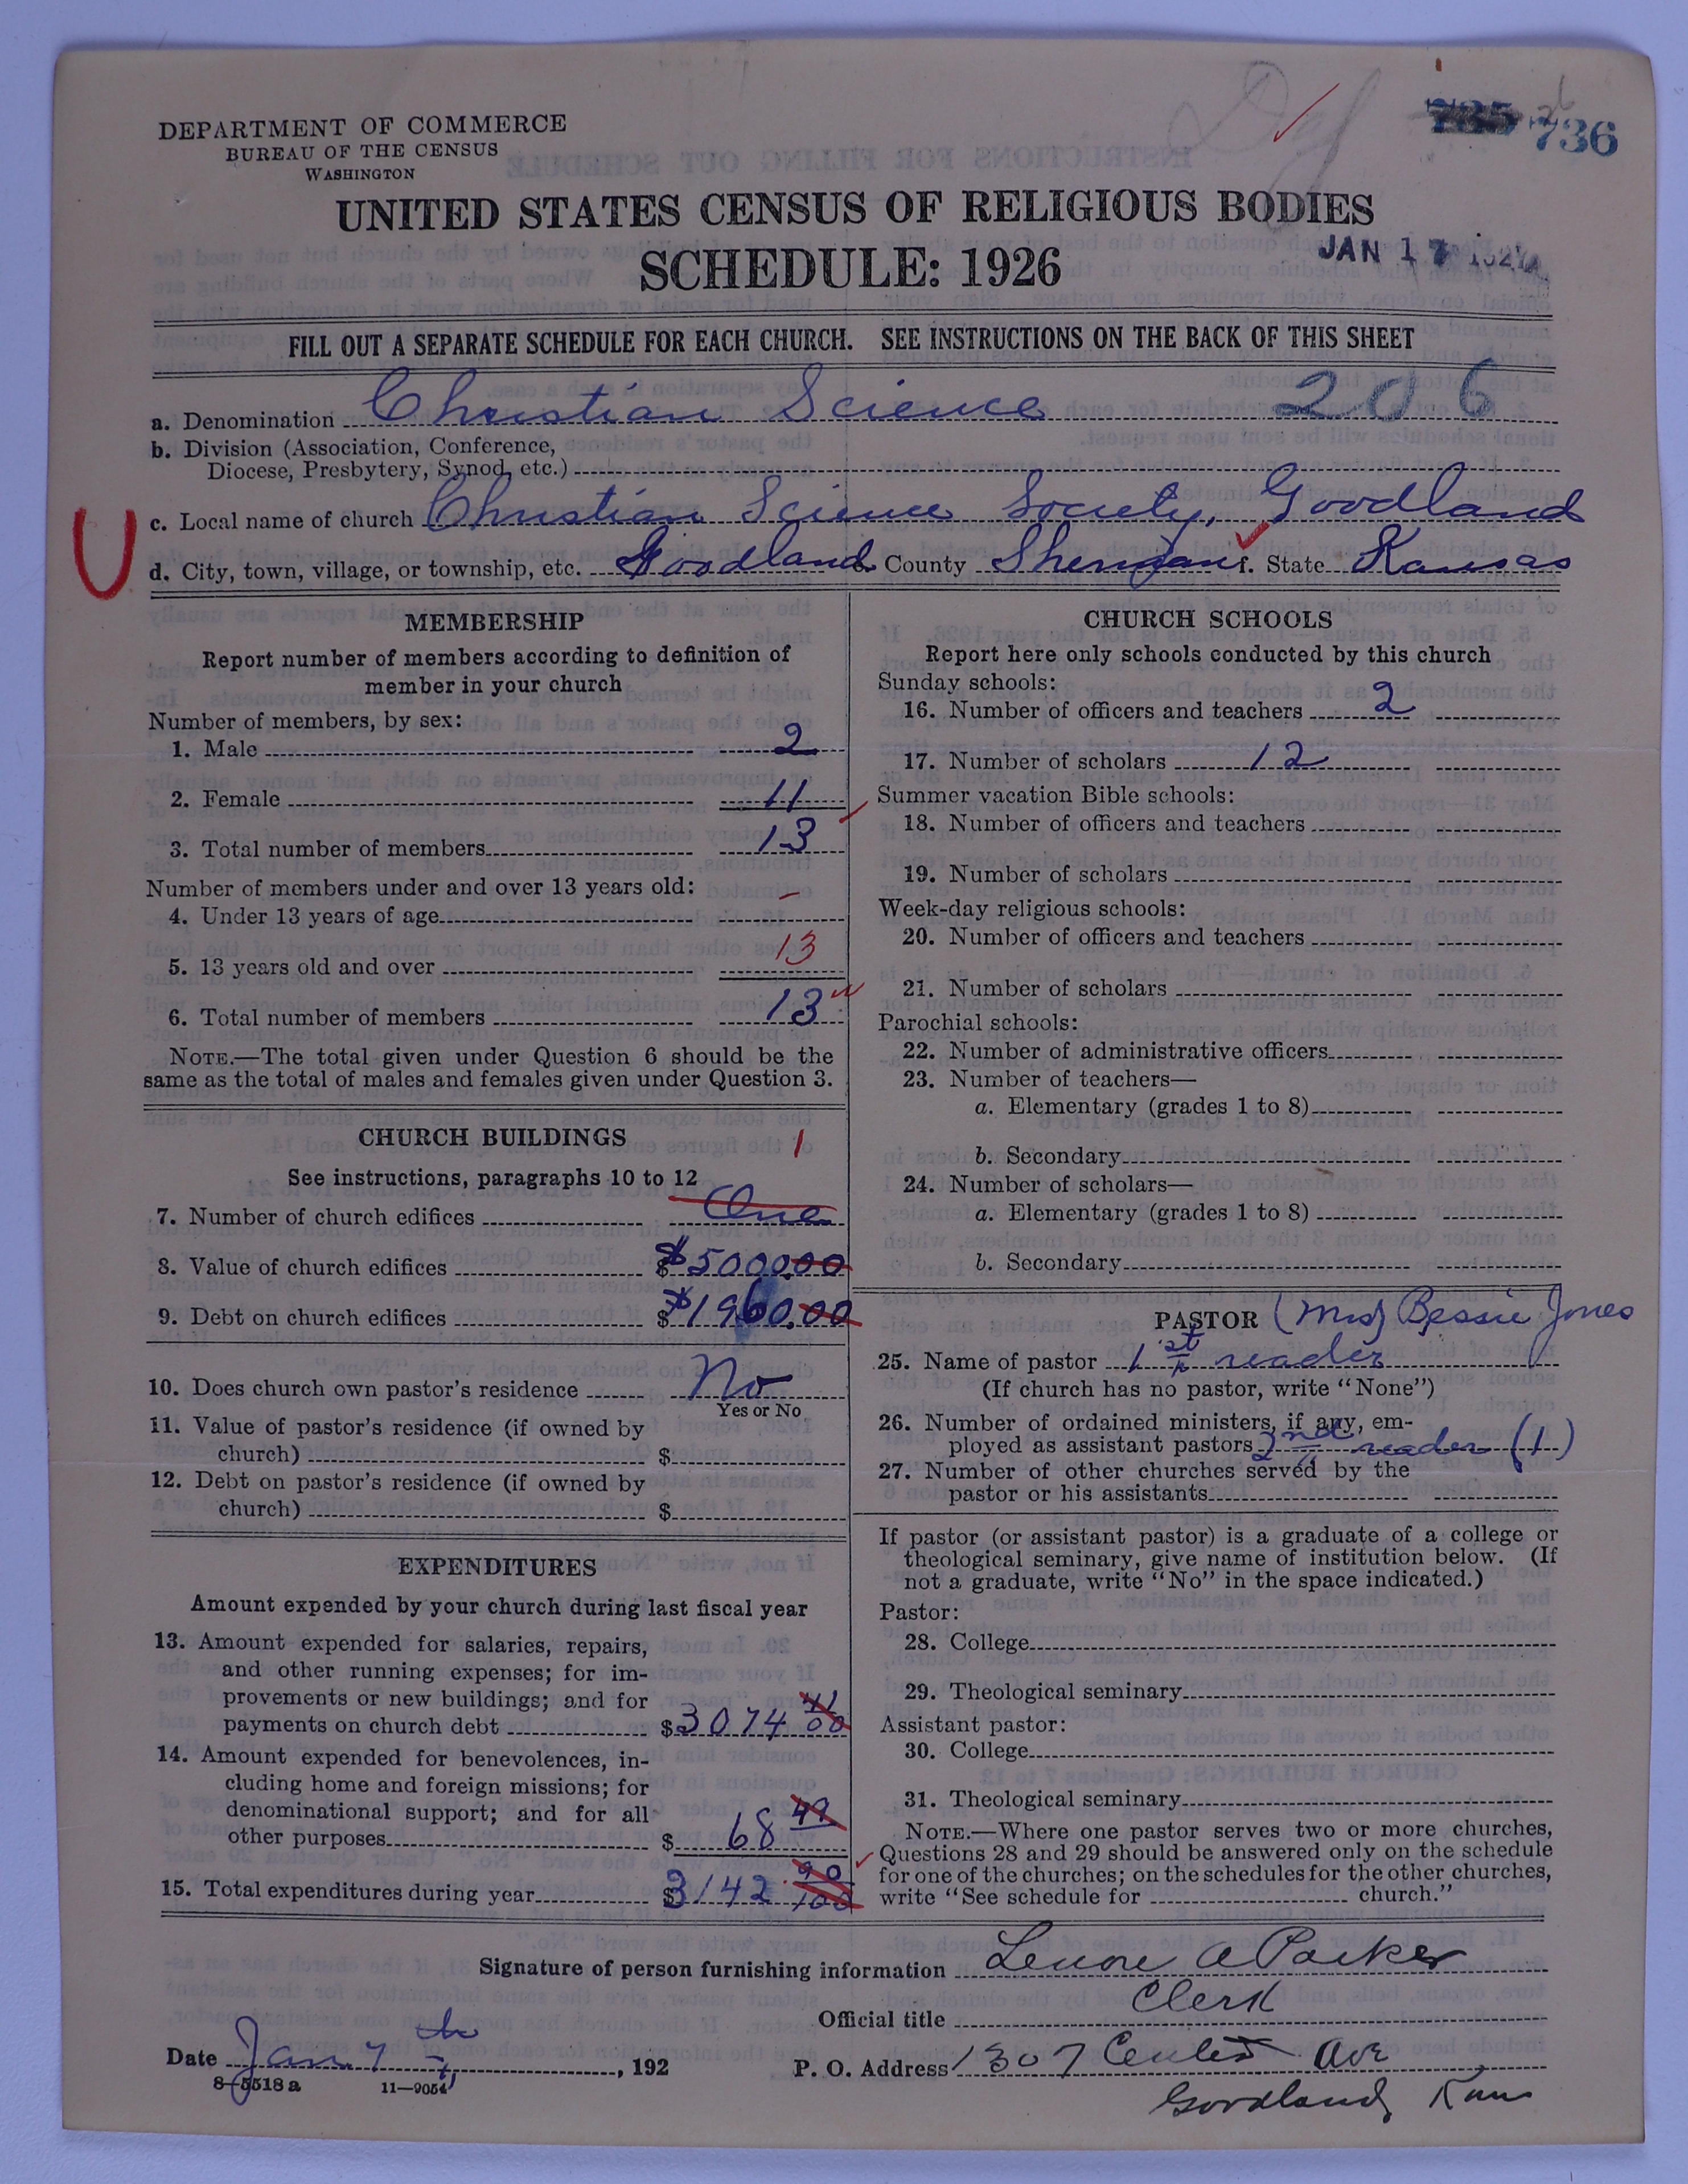 736
DEPARTMENT OF COMMERCE
BUREAU OF THE CENSUS
WASHINGTON
UNITED STATES CENSUS OF RELIGIOUS BODIES
SCHEDULE: 1926
JAN 17
FILL OUT A SEPARATE SCHEDULE FOR EACH CHURCH. SEE INSTRUCTIONS ON THE BACK OF THIS SHEET
a. Denomination Christian Science 206
b. Division (Association, Conference,
Diocese, Presbytery, Synod, etc.)
c. Local name of church Christian Science Society, Goodland
U
d. City, town, village, or township, etc. Goodland e. County Sherman f. State Kansas
MEMBERSHIP
Report number of members according to definition of
member in your church
Number of members, by sex:
1. Male 2
2. Female 11
3. Total number of members 13
Number of members under and over 13 years old:
4. Under 13 years of age –
5. 13 years old and over 13
6. Total number of members 13
NOTE.—The total given under Question 6 should be the
same as the total of males and females given under Question 3.
CHURCH BUILDINGS 1
See instructions, paragraphs 10 to 12
7. Number of church edifices One
8. Value of church edifices $5000.00
9. Debt on church edifices $1960.00
10. Does church own pastor's residence No
Yes or No
11. Value of pastor's residence (if owned by
church) $
12. Debt on pastor's residence (if owned by
church) $
EXPENDITURES
Amount expended by your church during last fiscal year
13. Amount expended for salaries, repairs,
and other running expenses; for im-
provements or new buildings; and for
payments on church debt $3074 41/00
14. Amount expended for benevolences, in-
cluding home and foreign missions; for
denominational support; and for all
other purposes $ 68 49
15. Total expenditures during year $3142 90/100
CHURCH SCHOOLS
Report here only schools conducted by this church
Sunday schools:
16. Number of officers and teachers 2
17. Number of scholars 12
Summer vacation Bible schools:
18. Number of officers and teachers
19. Number of scholars
Week-day religious schools:
20. Number of officers and teachers
21. Number of scholars
Parochial schools:
22. Number of administrative officers
23. Number of teachers—
a. Elementary (grades 1 to 8)
b. Secondary
24. Number of scholars—
a. Elementary (grades 1 to 8)
b. Secondary
PASTOR (Mrs) Bessie Jones
25. Name of pastor 1st reader
(If church has no pastor, write "None")
26. Number of ordained ministers, if any, em-
ployed as assistant pastors 2nd reader (1)
27. Number of other churches served by the
pastor or his assistants
If pastor (or assistant pastor) is a graduate of a college or
theological seminary, give name of institution below. (If
not a graduate, write "No" in the space indicated.)
Pastor:
28. College
29. Theological seminary
Assistant pastor:
30. College
31. Theological seminary
NOTE.—Where one pastor serves two or more churches,
Questions 28 and 29 should be answered only on the schedule
for one of the churches; on the schedules for the other churches,
write "See schedule for church."
Signature of person furnishing information Lenore A Parker
Official title Clerk
Date Jan. 7th, 192
P. O. Address 1307 Center Ave
Goodland, Kans
8—5518a 11—9054